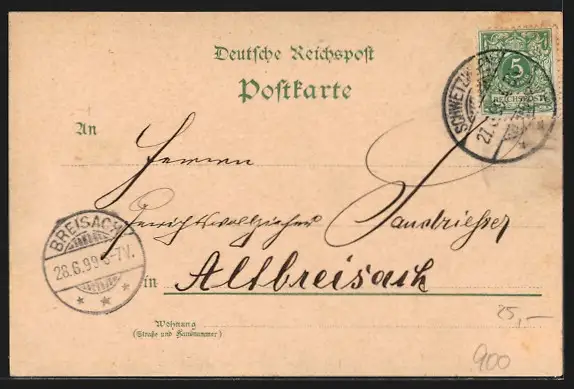 Deutsche Reichspost
Postkarte
5
REICHSPOST
SCHWETZINGEN
27.6.
An
Herrn
Gerichtsvollzieher
BREISACH
28.6.99 6-7V.
in Altbreisach
25,–
Wohnung
(Straße und Hausnummer)
900